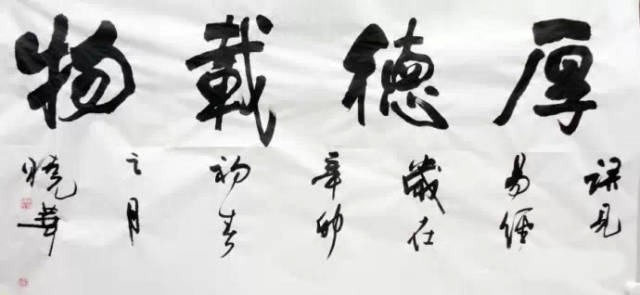 厚德載物
語見
易經
歲在
辛卯
初春
之月